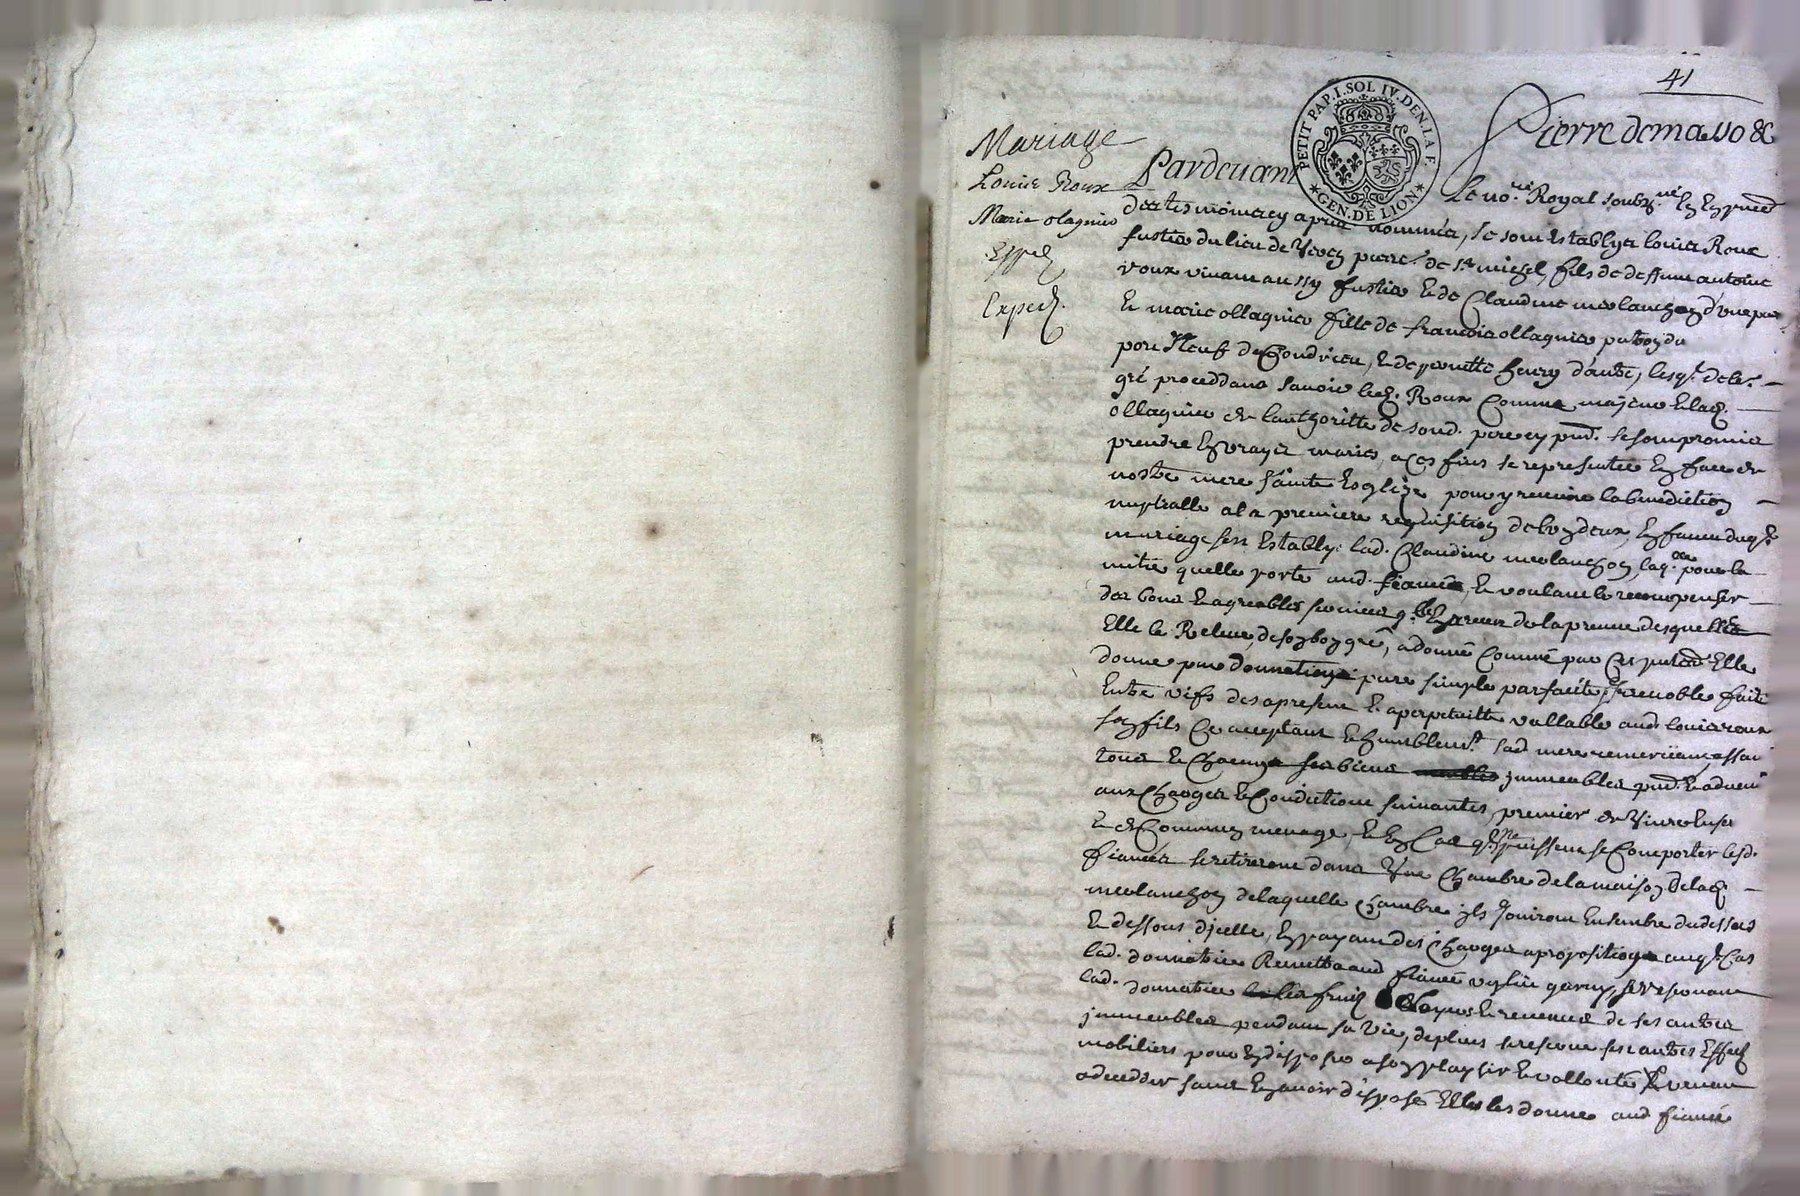 41
PETIT PAP. I. SOL IV. DEN. LA F.
GEN. DE LION
Pierre demasso &c
Mariage
Louis Roux
Marie olagnier
Exped.
Pardevant
Le no.re Royal soubz.né En presence
des tesmoins cy apres nommés, se sont Establys louis Roux
fustier du lieu de pierre de St. fils de deffunt antoine
roux vivant aussy fustier & de Claudine melanchon d'une part
Et marie ollagnier fille de francois ollagnier patron du
port Neuf de Condrieu, & de pernette henry d'autre, lesq.ls de leur
gré proceddans savoir led. Roux Comme majeur & lad.
ollagnier de l'authoritté de sond. pere cy pnt. se sont promis
prendre En vrays maries, a ces fins se representer En face de
nostre mere sainte Esglize pour y recevoir la benediction
nuptialle a la premiere requisition de l'un d'eux, En faveur duq.l
mariage s'est Establye lad. Claudine melanchon, laq.lle pour la
mitié quelle porte aud. fiancé, & voulant le recompenser
des bons & agreables services de la preuve desquelles
Elle le Releve, de son bon gré, a donné Comme par Ces presentes Elle
donne par donnation pure simple parfaite irrevocable faite
Entre vifs des a present & a perpetuitté vallable aud. louis roux
son fils Ce acceptant & humblem.t sad. mere remerciant
tous & Chacuns ses biens immeubles pnts. & advenir
aux Charges & Conditions suivantes, premier de Vivre
& de Commun menage, & En Cas q.ils ne puissent se Comporter lesd.
fiancés se retireront dans Une Chambre de la maison de lad.
melanchon de laquelle chambre ils jouiront Ensembre du dessus
& dessous d'icelle, En payant des charges a proposition auq.l Cas
lad. donnatrice Remettra aud. fiancé garny, se reservant
lad. donnatrice les fruits & revenus de ses autres
immeubles pendant sa Vie, de plus se reserve ses autres Effets
mobiliers pour En disposer a son plaisir & vollonté & venant
a decedder sans En avoir disposé Elle les donne aud. fiancé